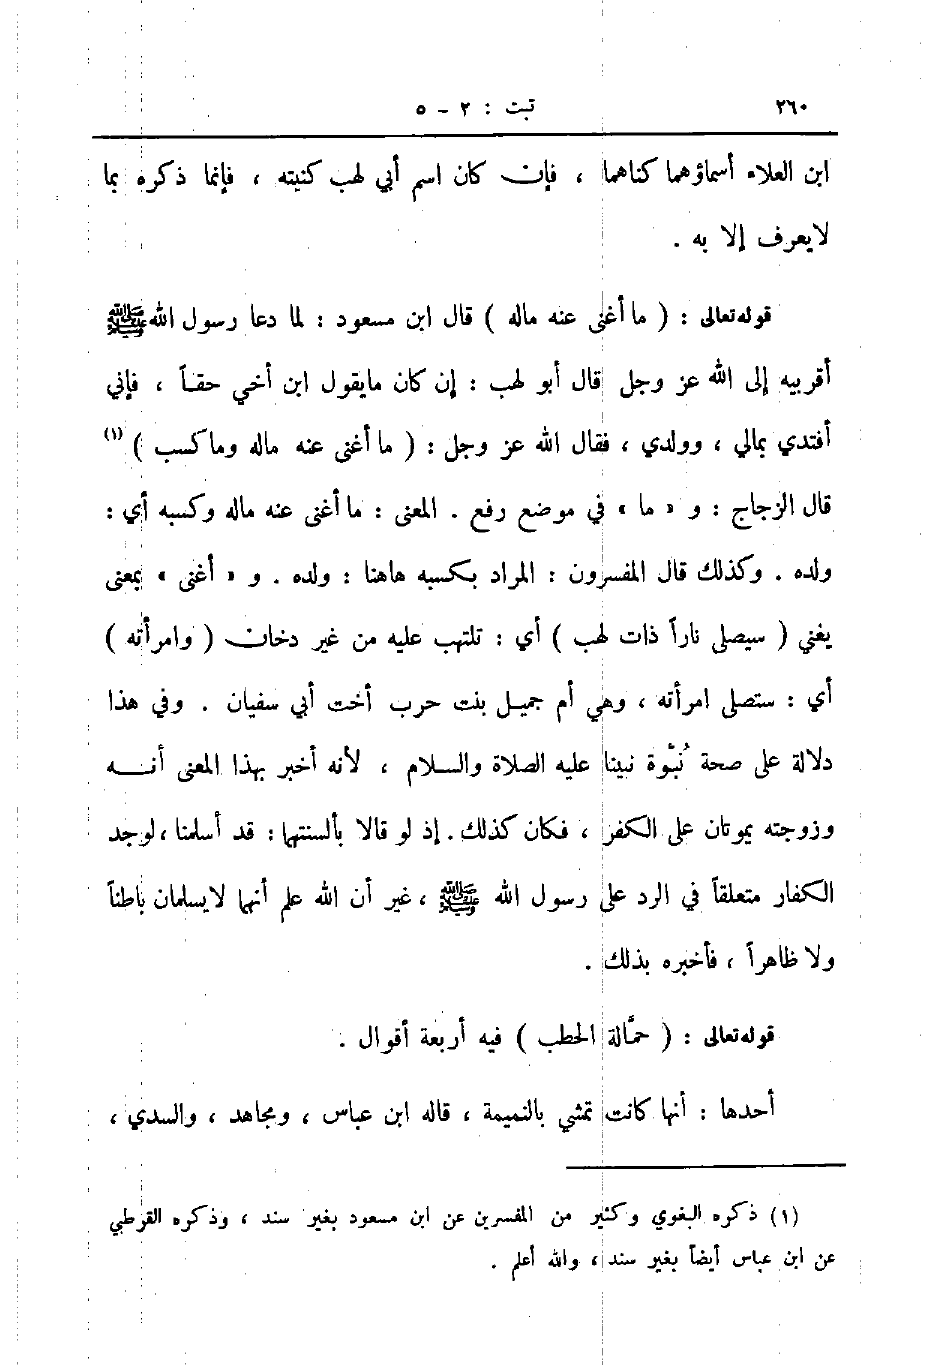 ٢٦٠ تبت : ٢ – ٥
ابن العلاء أسماؤهما كناهما ، فإن كان اسم أبي لهب كنيته ، فإنما ذكره بما
لايعرف إلا به .
قوله تعالى : ( ما أغنى عنه ماله ) قال ابن مسعود : لما دعا رسول الله ﷺ
أقربيه إلى الله عز وجل قال أبو لهب : إن كان مايقول ابن أخي حقاً ، فإني
أفتدي بمالي ، وولدي ، فقال الله عز وجل : ( ما أغنى عنه ماله وما كسب ) (١)
قال الزجاج : و « ما » في موضع رفع . المعنى : ما أغنى عنه ماله وكسبه أي :
ولده . وكذلك قال المفسرون : المراد بكسبه هاهنا : ولده . و « أغنى » بمعنى
يغني ( سيصلى ناراً ذات لهب ) أي : تلتهب عليه من غير دخان ( وامرأته )
أي : ستصلى امرأته ، وهي أم جميل بنت حرب أخت أبي سفيان . وفي هذا
دلالة على صحة نُبُوَّة نبينا عليه الصلاة والسلام ، لأنه أخبر بهذا المعنى أنه
وزوجته يموتان على الكفر ، فكان كذلك . إذ لو قالا بألسنتهما : قد أسلمنا ، لوجد
الكفار متعلقاً في الرد على رسول الله ﷺ ، غير أن الله علم أنهما لايسلمان باطناً
ولا ظاهراً ، فأخبره بذلك .
قوله تعالى : ( حمَّالة الحطب ) فيه أربعة أقوال .
أحدها : أنها كانت تمشي بالنميمة ، قاله ابن عباس ، ومجاهد ، والسدي ،
(١) ذكره البغوي وكثير من المفسرين عن ابن مسعود بغير سند ، وذكره القرطبي
عن ابن عباس أيضاً بغير سند ، والله أعلم .